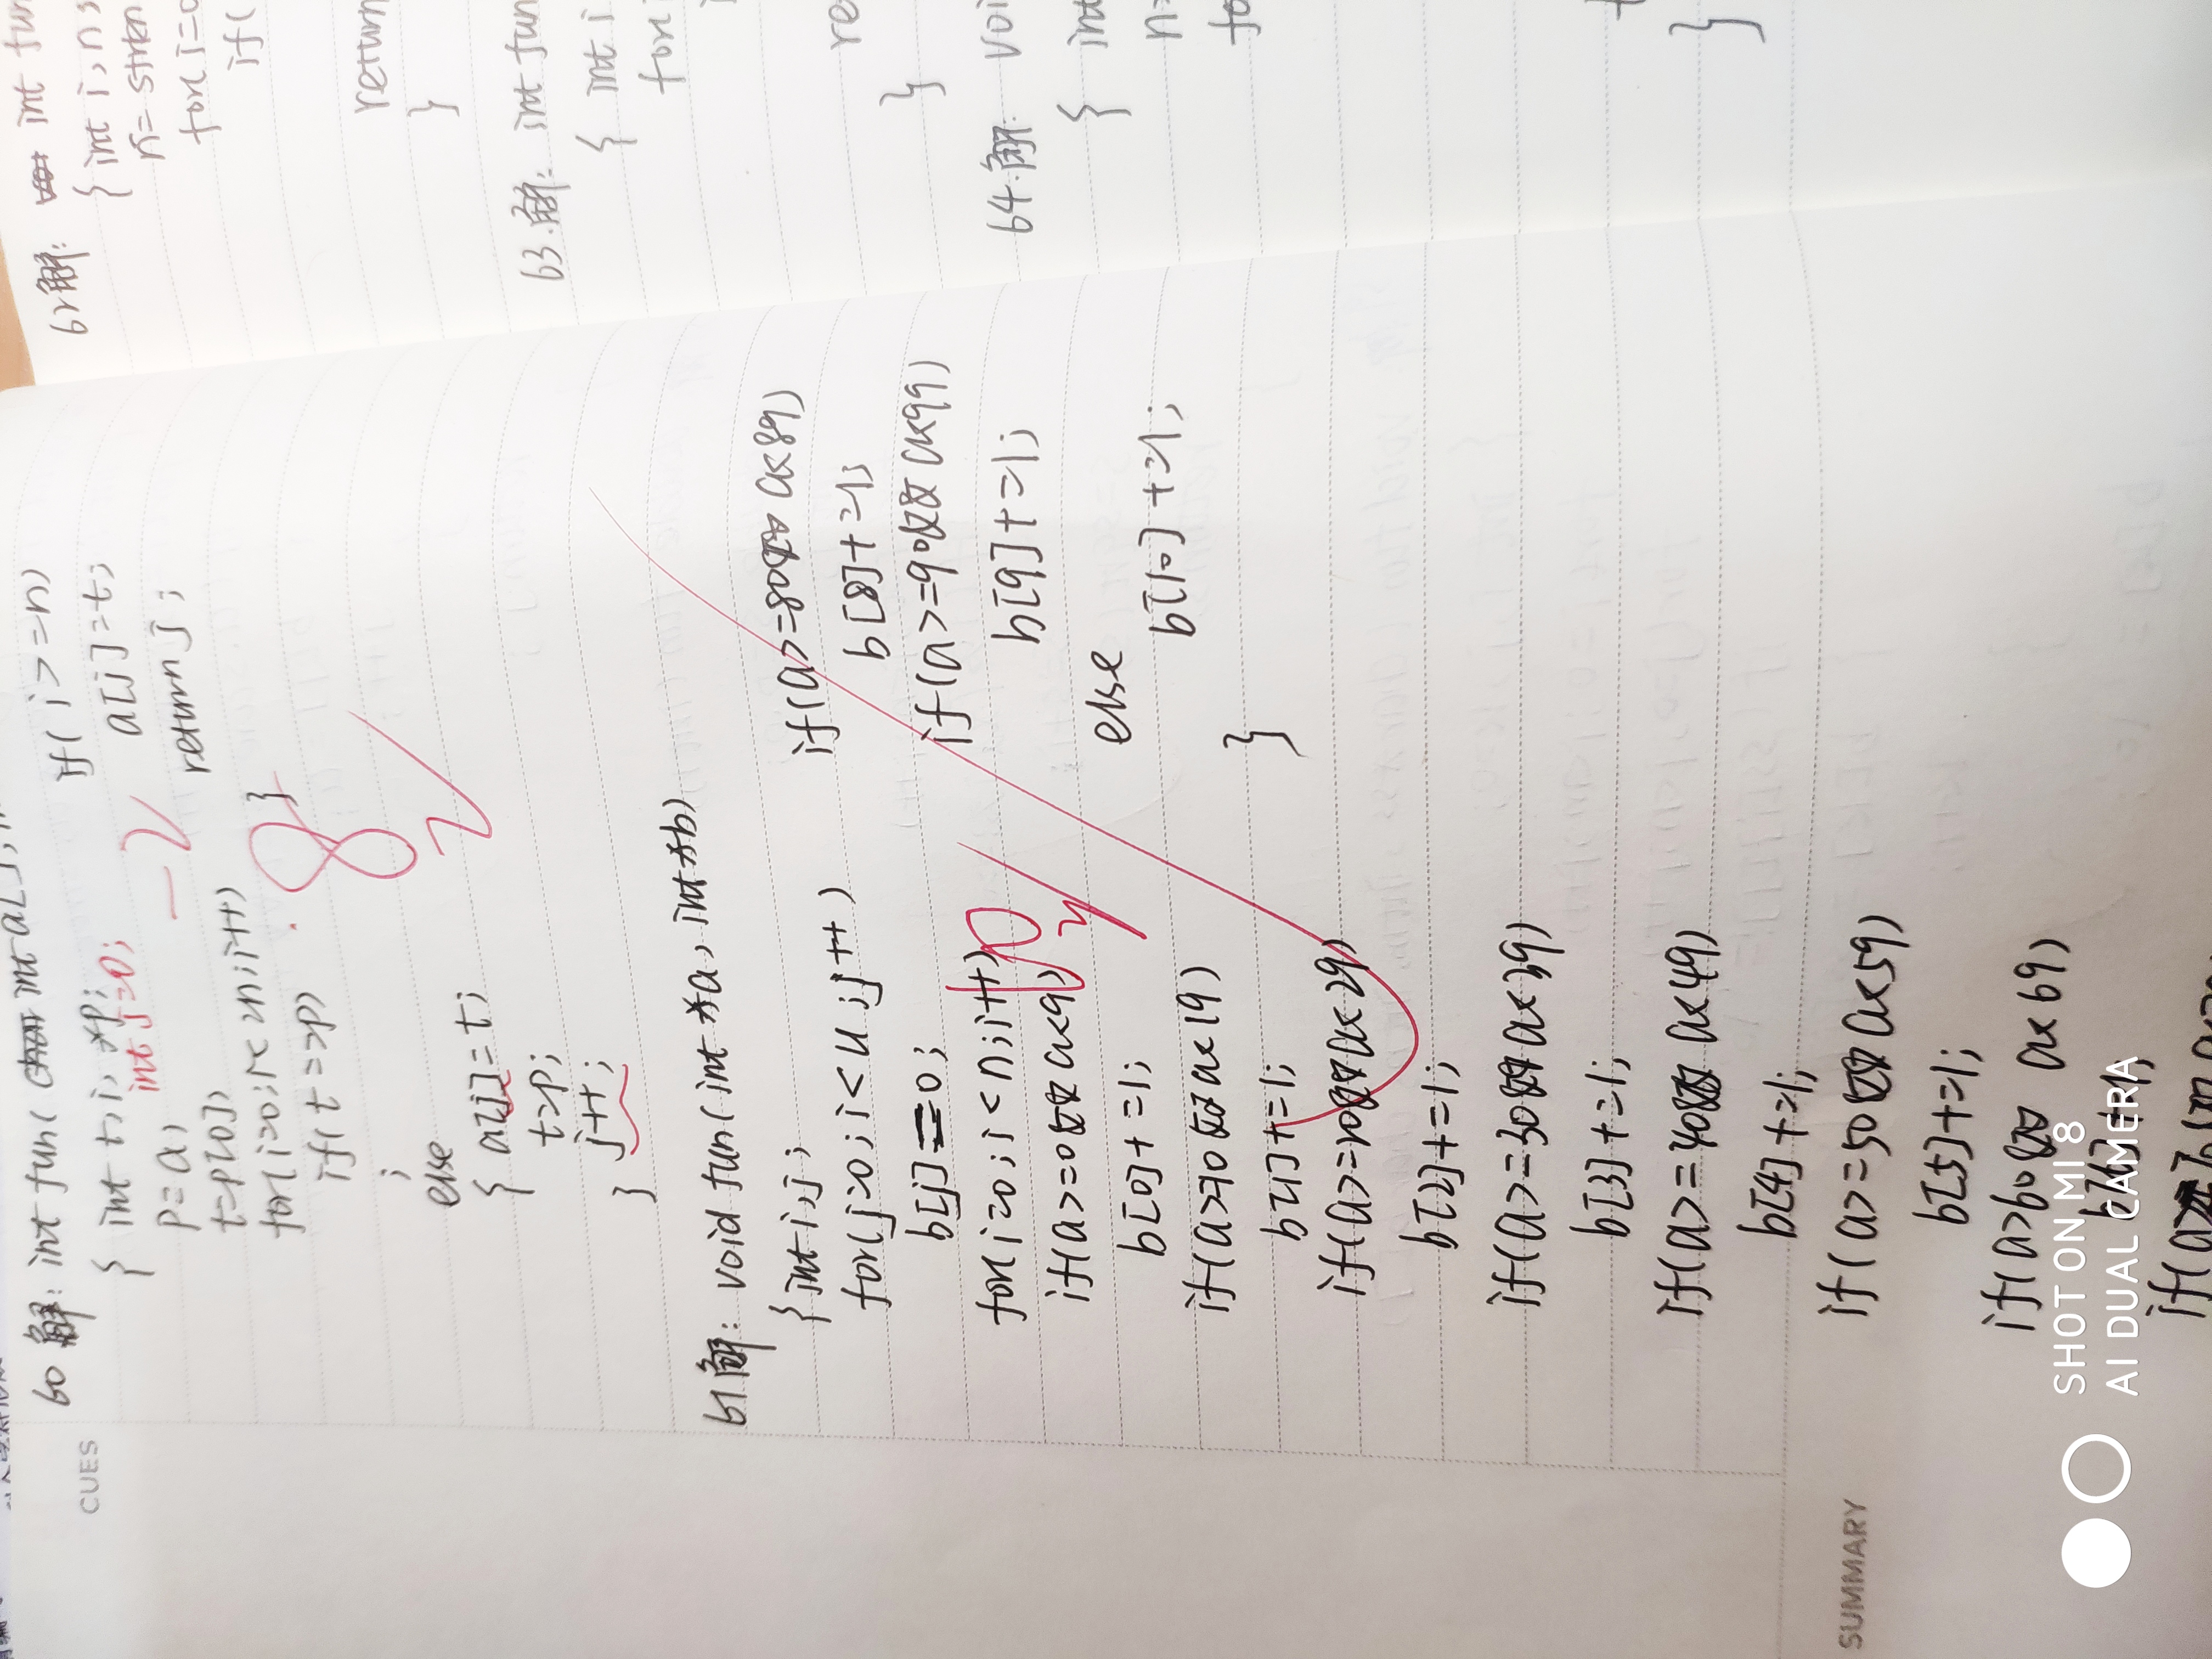 CUES
60 解: int fun( int a[],
{ int t, i, *p;
int j=0;
p=a;
t=p[0];
for(i=0;i<=n;i++)
if(t==p)
;
else
{ a[j]=t;
t=p;
j++;
}
if( i>=n)
a[j]=t;
return j;
}
-2
8
61解: void fun(int *a, int *b)
{int i,j;
for(j=0;i<11;j++)
b[j]=0;
for(i=0;i<n;i++)
if(a>=0&&a<9)
b[0]+=1;
if(a>=10&&a<19)
b[1]+=1;
if(a>=20&&a<29)
b[2]+=1;
if(a>=30&&a<39)
b[3]+=1;
if(a>=40&&a<49)
b[4]+=1;
if(a>=50&&a<59)
b[5]+=1;
if(a>60&& a<69)
b[6]+=1;
10
if(a>=80&& a<89)
b[8]+=1;
if(a>=90&& a<99)
b[9]+=1;
else
b[10]+=1;
}
SUMMARY
62解: int fun
{ int i,n,
n= strlen
for(i=0
if(
return
}
63.解: int fun
{ int i
for(
re
}
64.解: voi
{ int
n=
fo
}
SHOT ON MI 8
AI DUAL CAMERA